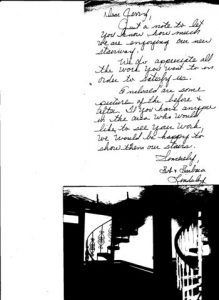 Dear Jerry,
Just a note to let
you know how much
we are enjoying our new
stairway.
We do appreciate all
the work you went to in
order to satisfy us.
Enclosed are some
pictures of the before &
after. If you have anyone
in the area who would
like to see your work,
we would be happy to
show them our stairs.
Sincerely,
Bob & Barbara